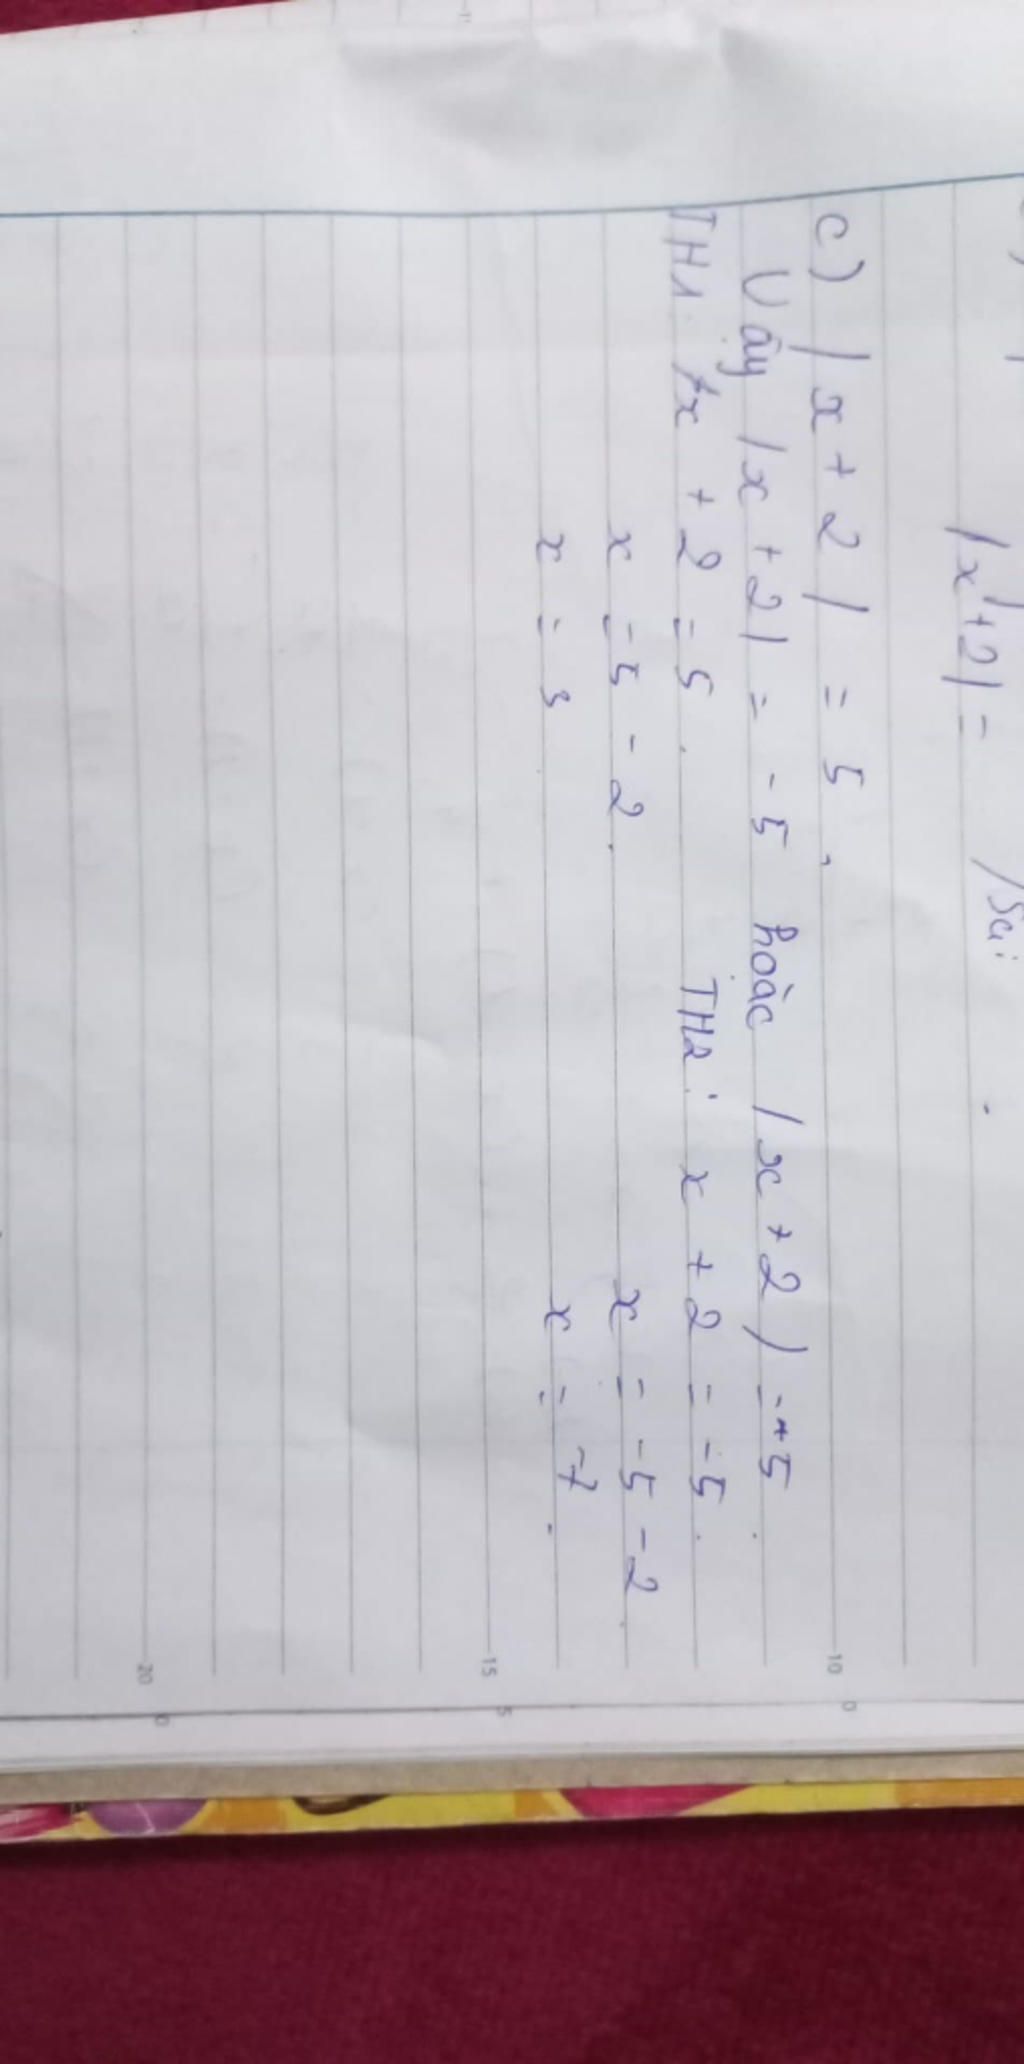 |x+2| = /Sai
c) |x + 2| = 5,
Vậy |x + 2| = -5 hoặc |x + 2| = +5
TH1: x + 2 = 5. TH2: x + 2 = -5.
x = 5 - 2. x = -5 - 2.
x = 3 x = -7.
10
15
20